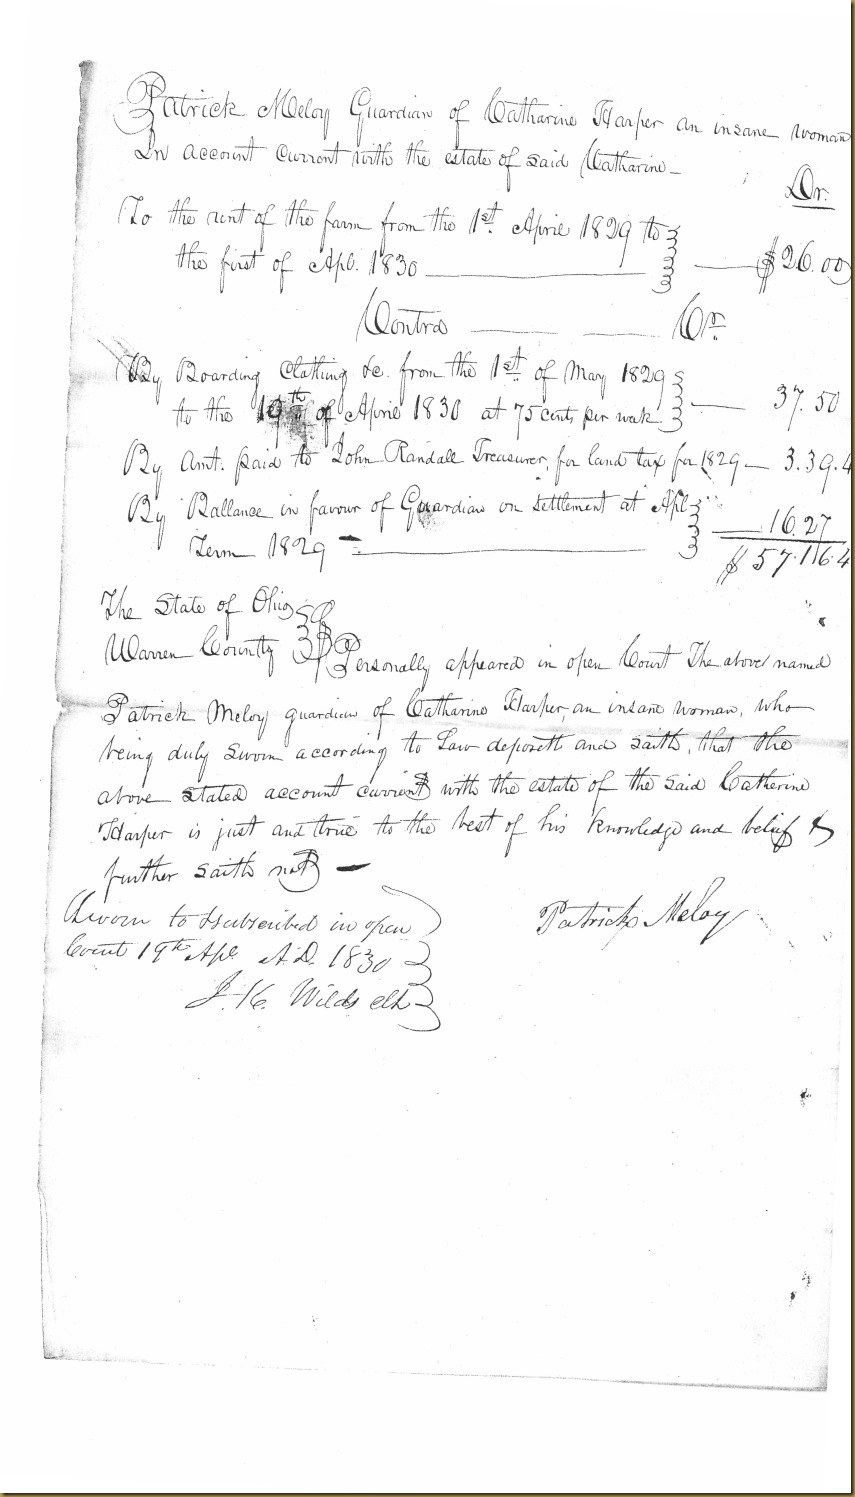 Patrick Meloy Guardian of Catharine Harper an insane woman
In account Current with the estate of said Catharine
Dr.
To the rent of the farm from the 1st. April 1829 to
the first of Apl. 1830 $26.00
Contra Cr
By Boarding Clothing &c. from the 1st of May 1829
to the 19th of April 1830 at 75 cents per week 37.50
By Amt. paid to John Randall Treasurer, for land tax for 1829 3.39.4
By Ballance in favour of Guardian on settlement at Apl
Term 1829 16.27
$57.16.4
The State of Ohio
Warren County Personally appeared in open Court The above named
Patrick Meloy guardian of Catharine Harper, an insane woman, who
being duly sworn according to Law deposeth and saith, that the
above stated account current with the estate of the said Catherine
Harper is just and true to the best of his knowledge and belief &
further saith not
Sworn to & subscribed in open
Court 19th Apl A.D. 1830
J. K. Wilds clk
Patrick Meloy